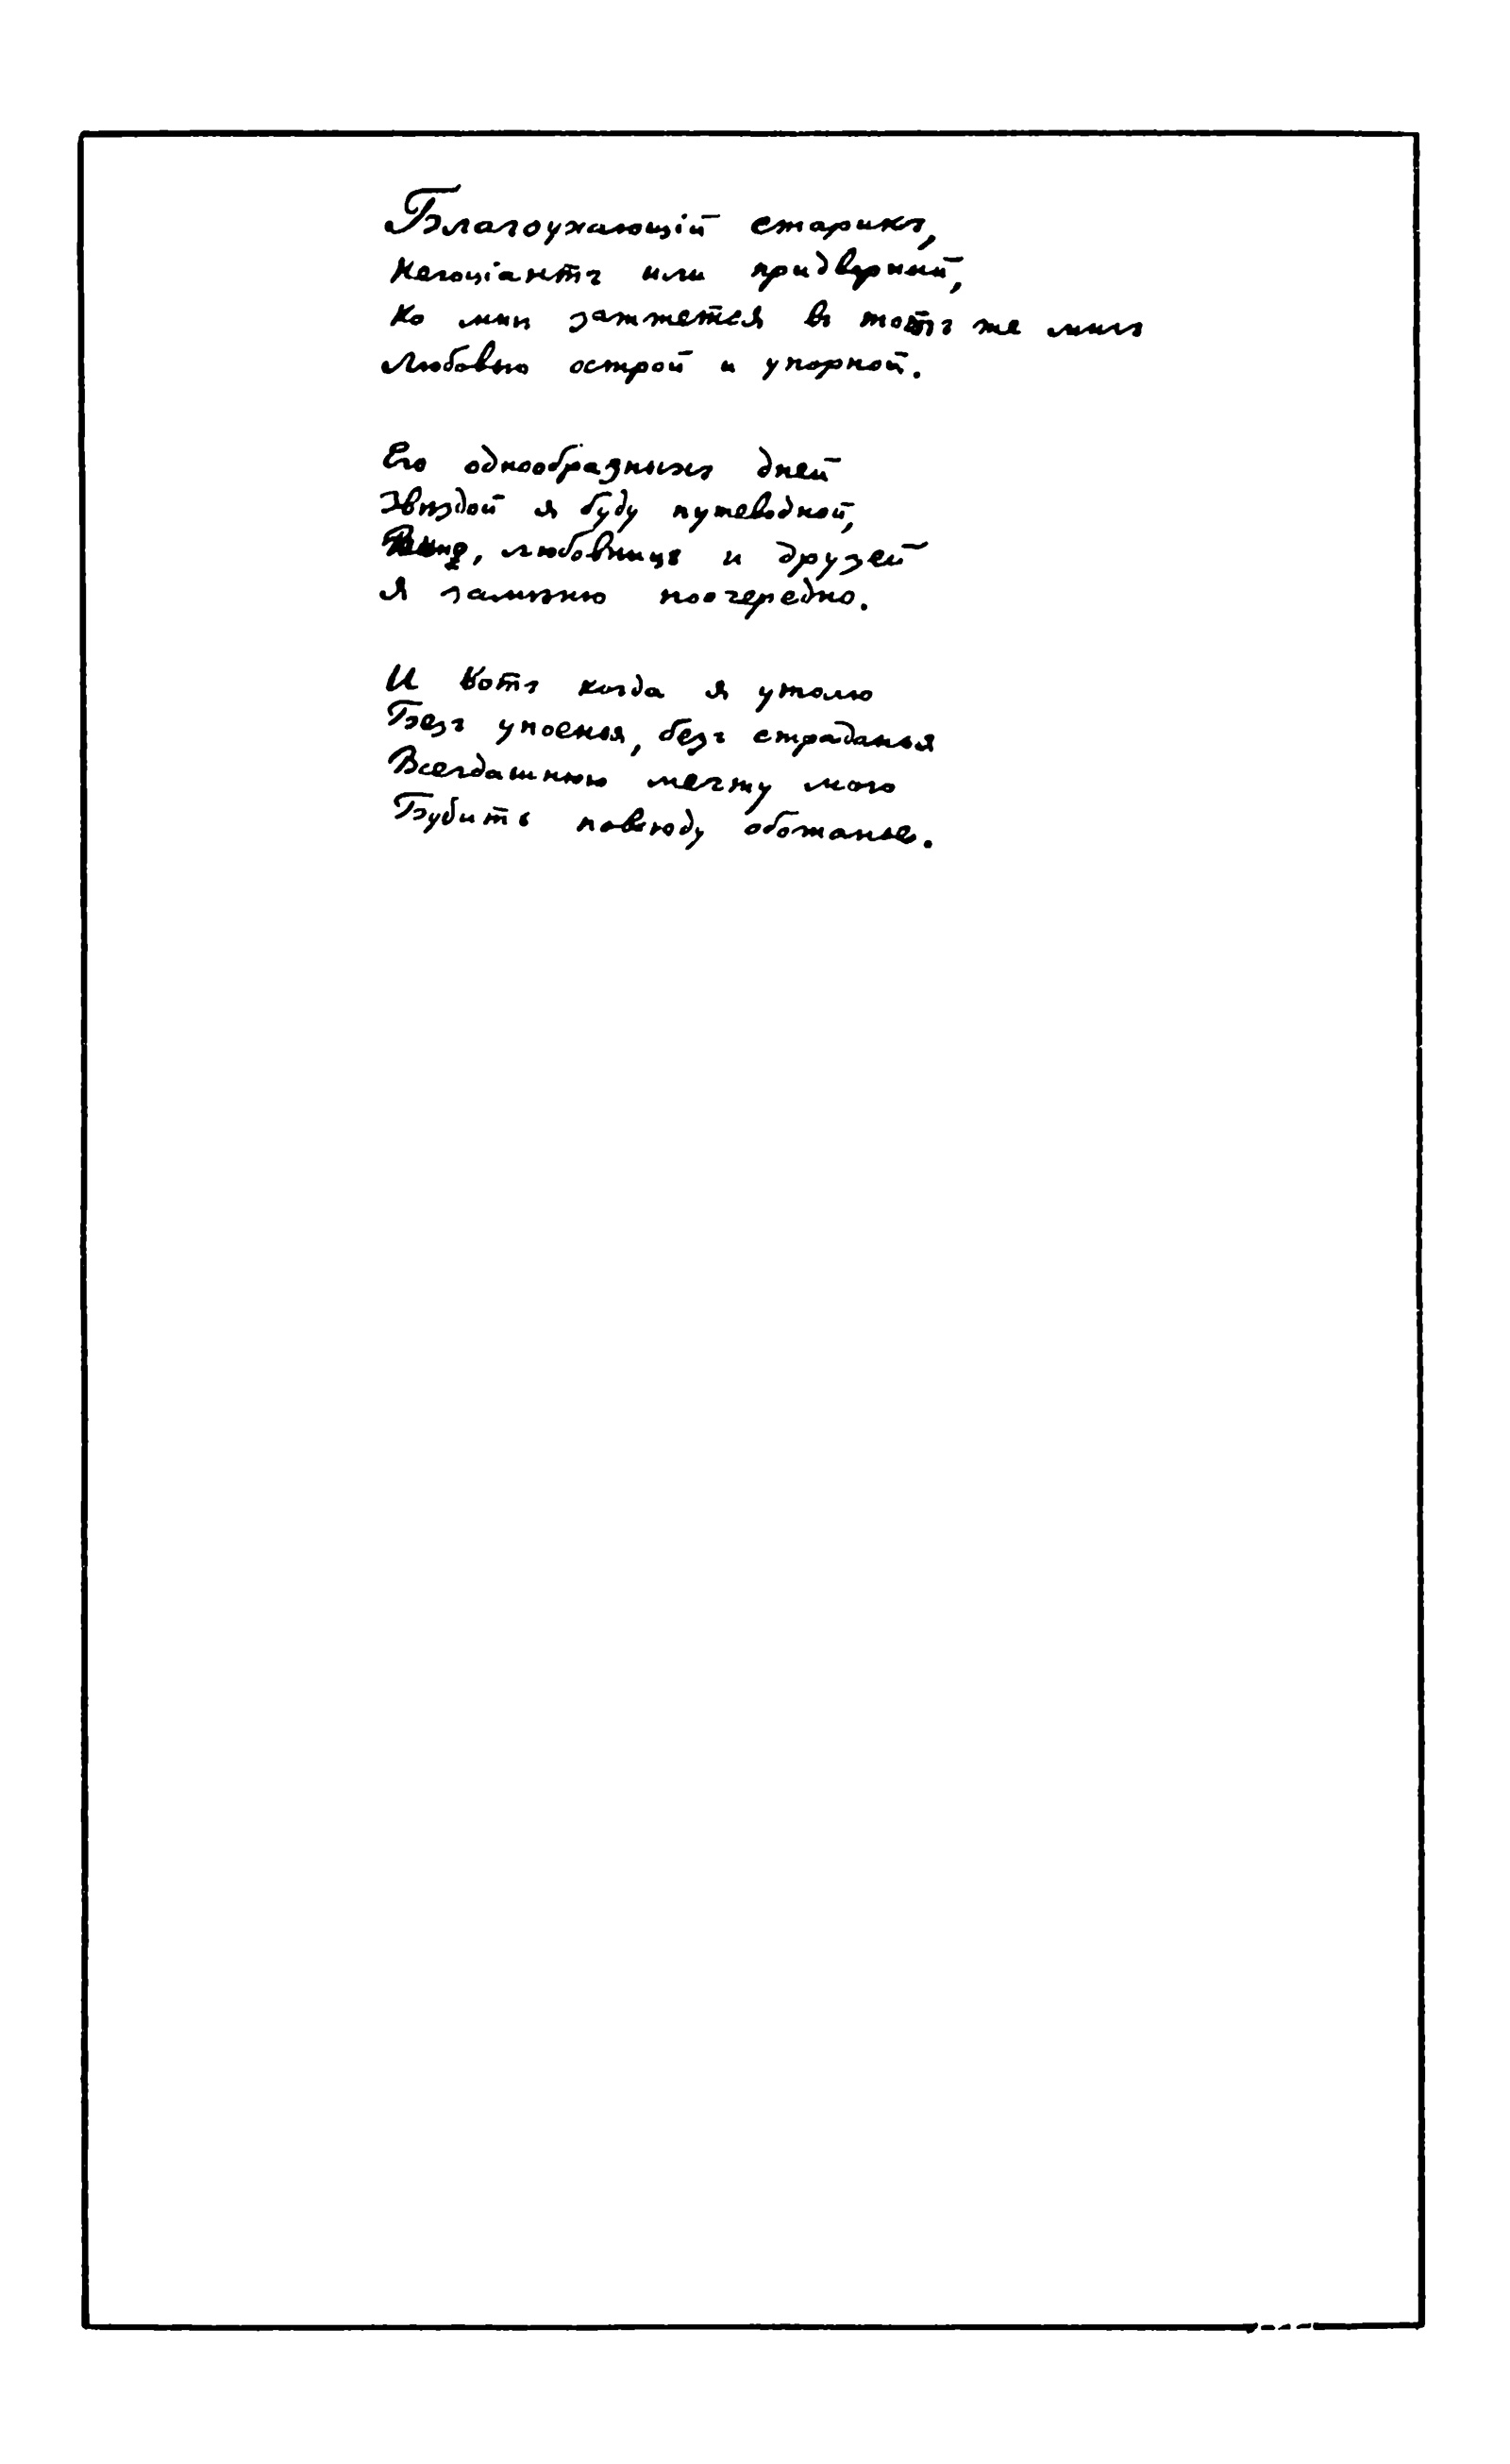 Благоухающій старикъ,
Негоціантъ или придворный,
Ко мнѣ зажжется въ тотъ же мигъ
Любовью острой и упорной.
Его однообразныхъ дней
Звѣздой я буду путеводной,
любовницъ и друзей
Я замѣню поочередно.
И вотъ когда я утолю
Безъ упоенья, безъ страданья
Всегдашнюю мечту мою
Будить повсюду обожанье.